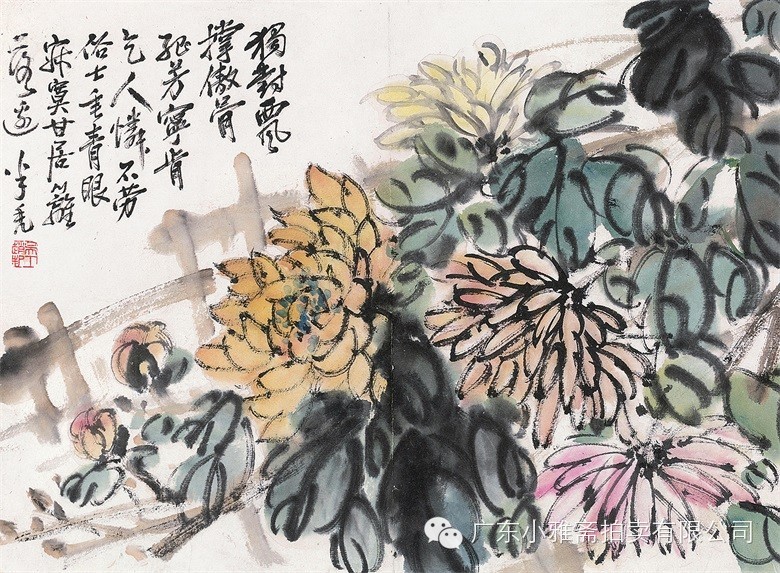 獨對西風
撐傲骨
孤芳寧肯
乞人憐不勞
俗士垂青眼
寂寞甘居籬
落邊
广东小雅斋拍卖有限公司